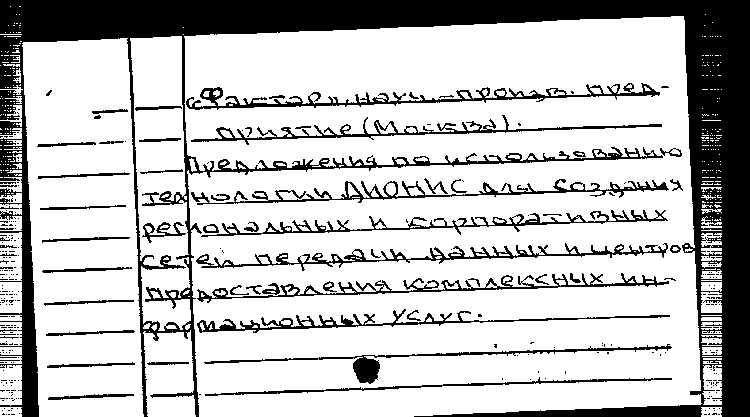 «Фактор», науч.-произв. пред-
приятие (Москва).
Предложения по использованию
технологии ДИОНИС для создания
региональных и корпоративных
сетей передачи данных и центров
предоставления комплексных ин-
формационных услуг.